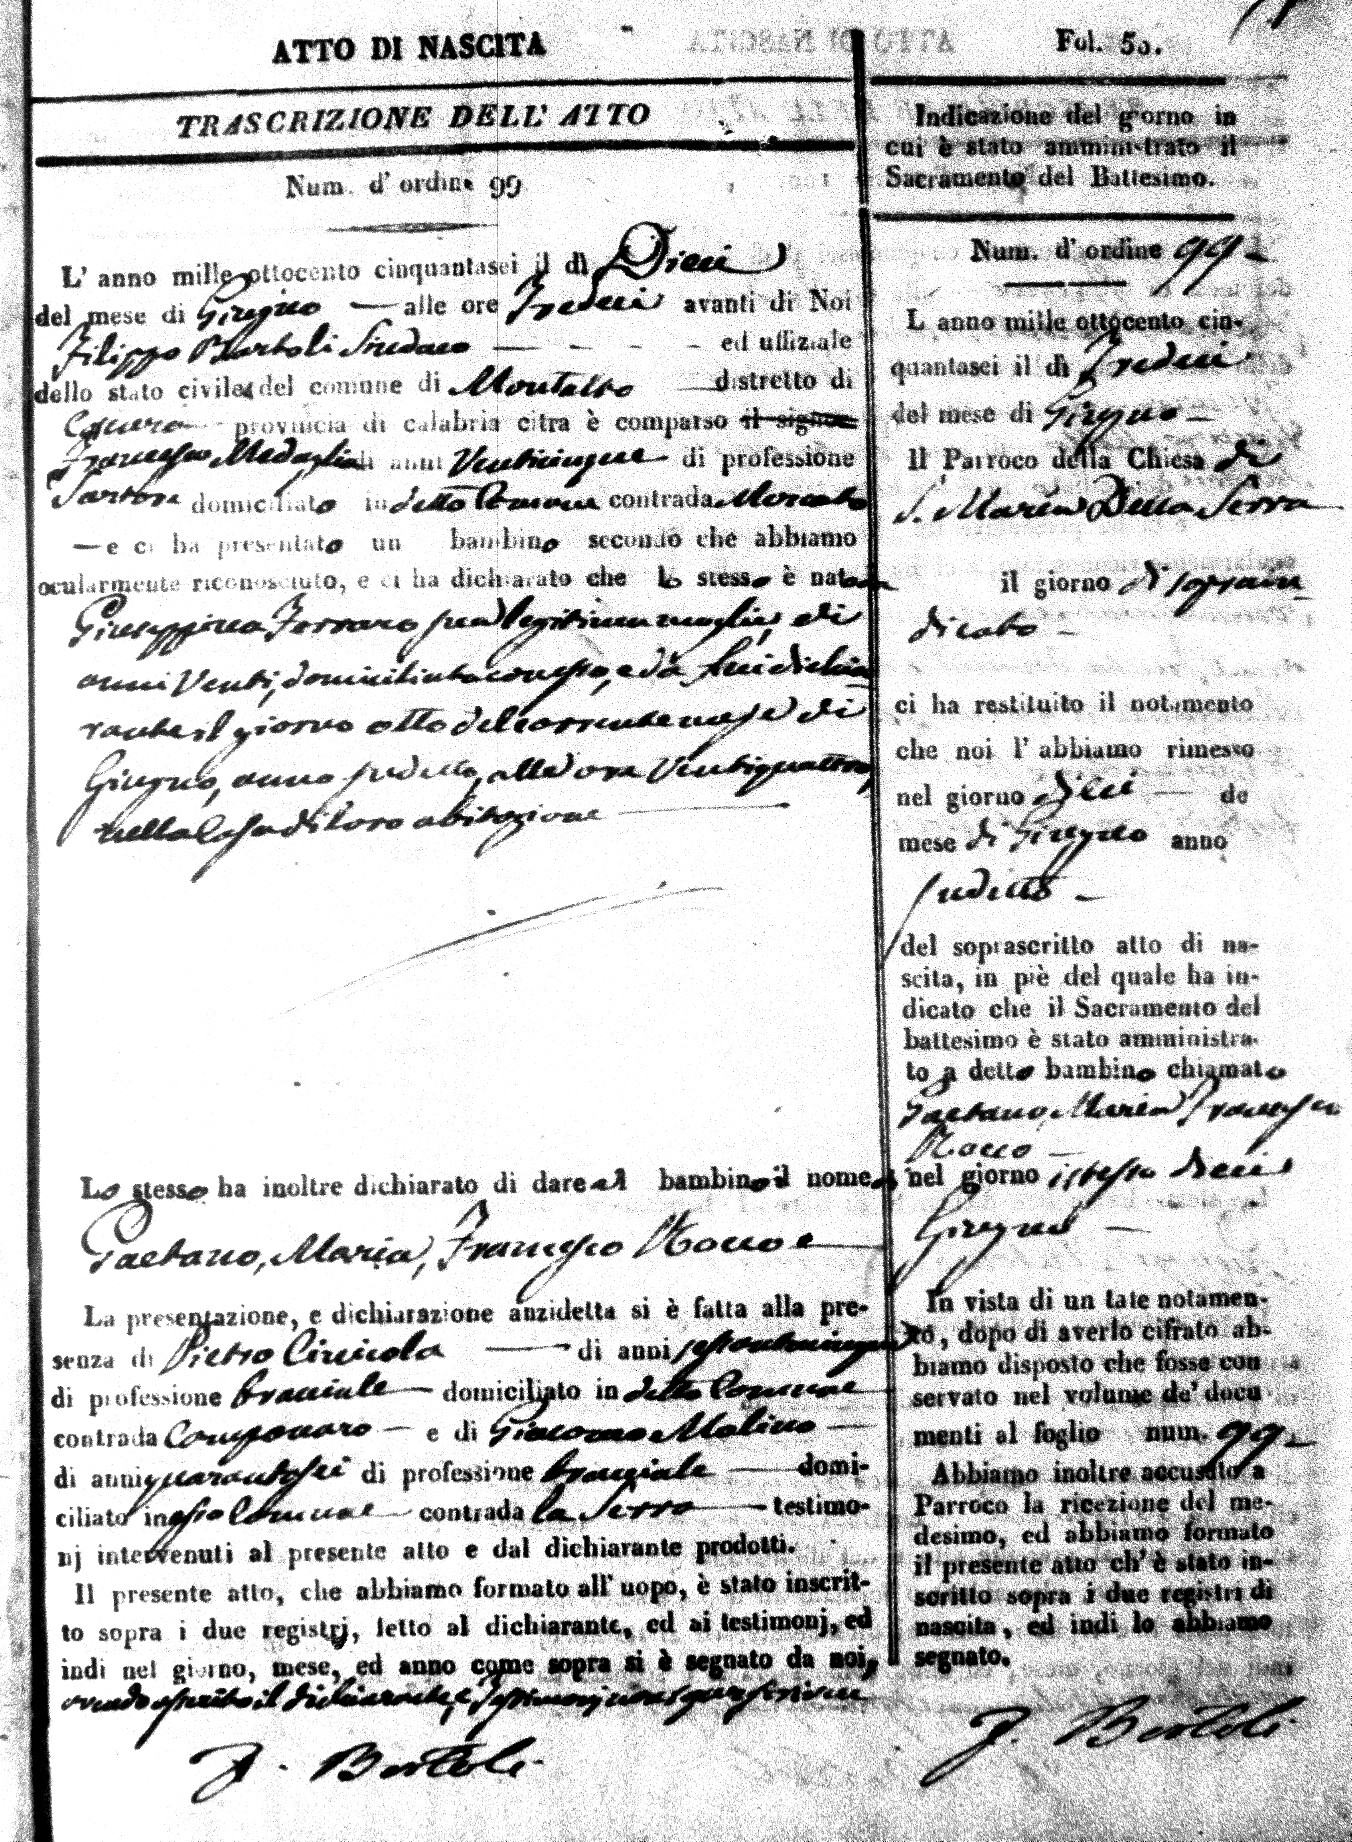 ATTO DI NASCITA
TRASCRIZIONE DELL' ATTO
Num. d' ordine 99
L' anno mille ottocento cinquantasei il dì Dieci
del mese di Giugno — alle ore Tredeci avanti di Noi
Filippo Bartoli Sindaco — - - - ed uffiziale
dello stato civile del comune di Montalto — distretto di
Cosenza provincia di calabria citra è comparso il signor
Francesco Medaglia di anni Venticinque di professione
Sartore domiciliato in detto Comune contrada Mercato
— e ci ha presentato un bambino secondo che abbiamo
ocularmente riconosciuto, e ci ha dichiarato che lo stesso è nato da
Giuseppina Ferraro sua legitima moglie, di
anni Venti, domiciliata con esso, e da lui dichia
rante il giorno otto del corrente mese di
Giugno, anno sudetto, alle ore Ventiquattro,
nella Casa di loro abitazione —
Lo stesso ha inoltre dichiarato di dare al bambino il nome di
Gaetano, Maria, Francesco Rocco —
La presentazione, e dichiarazione anzidetta si è fatta alla pre-
senza di Pietro — di anni sessantacinque
di professione bracciale — domiciliato in detto Comune
contrada — e di Giacomo Molino —
di anni quarantasei di professione bracciale — domi-
ciliato in esso Comune — contrada la Serra — testimo-
nj intervenuti al presente atto e dal dichiarante prodotti.
Il presente atto, che abbiamo formato all' uopo, è stato inscrit-
to sopra i due registrj, letto al dichiarante, ed ai testimonj, ed
indi nel giorno, mese, ed anno come sopra si è segnato da noi,
avendo asserito il dichiarante, e Testimonj non saper scrivere
F. Bartoli
Fol. 50.
Indicazione del giorno in
cui è stato amministrato il
Sacramento del Battesimo.
Num. d' ordine 99 -
L anno mille ottocento cin-
quantasei il dì Tredeci
del mese di Giugno —
Il Parroco della Chiesa di
S. Maria Della Serra
il giorno di sopra in
dicato -
ci ha restituito il notamento
che noi l' abbiamo rimesso
nel giorno dieci — de
mese di Giugno anno
sudetto —
del soprascritto atto di na-
scita, in piè del quale ha in-
dicato che il Sacramento del
battesimo è stato amministra-
to a detto bambino chiamato
Gaetano, Maria Francesco
Rocco —
nel giorno istesso dieci
Giugno —
In vista di un tale notamen-
to, dopo di averlo cifrato ab-
biamo disposto che fosse con
servato nel volume de' docu
menti al foglio num. 99 -
Abbiamo inoltre accusato a
Parroco la ricezione del me-
desimo, ed abbiamo formato
il presente atto ch' è stato in-
scritto sopra i due registri di
nascita, ed indi lo abbiamo
segnato.
F. Bartoli